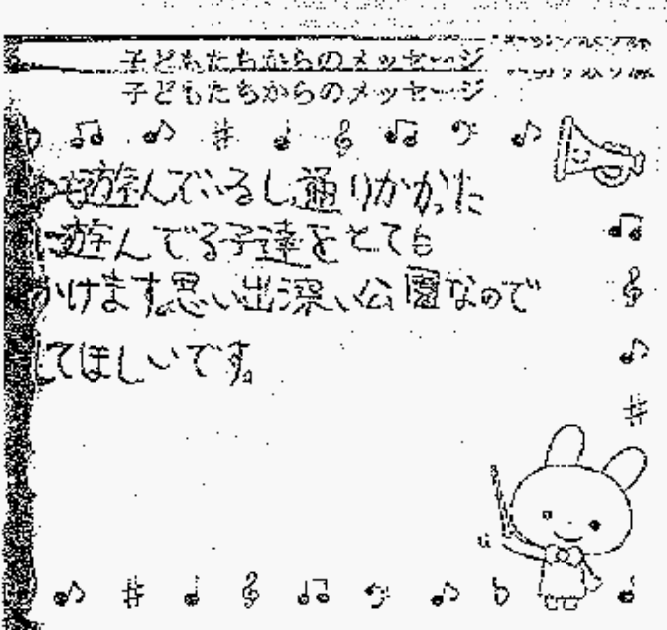 子どもたちからのメッセージ
子どもたちからのメッセージ
も遊んでいるし、通りかかった
に遊んでる子達をとても
かけます。思い出深い公園なので
してほしいです。